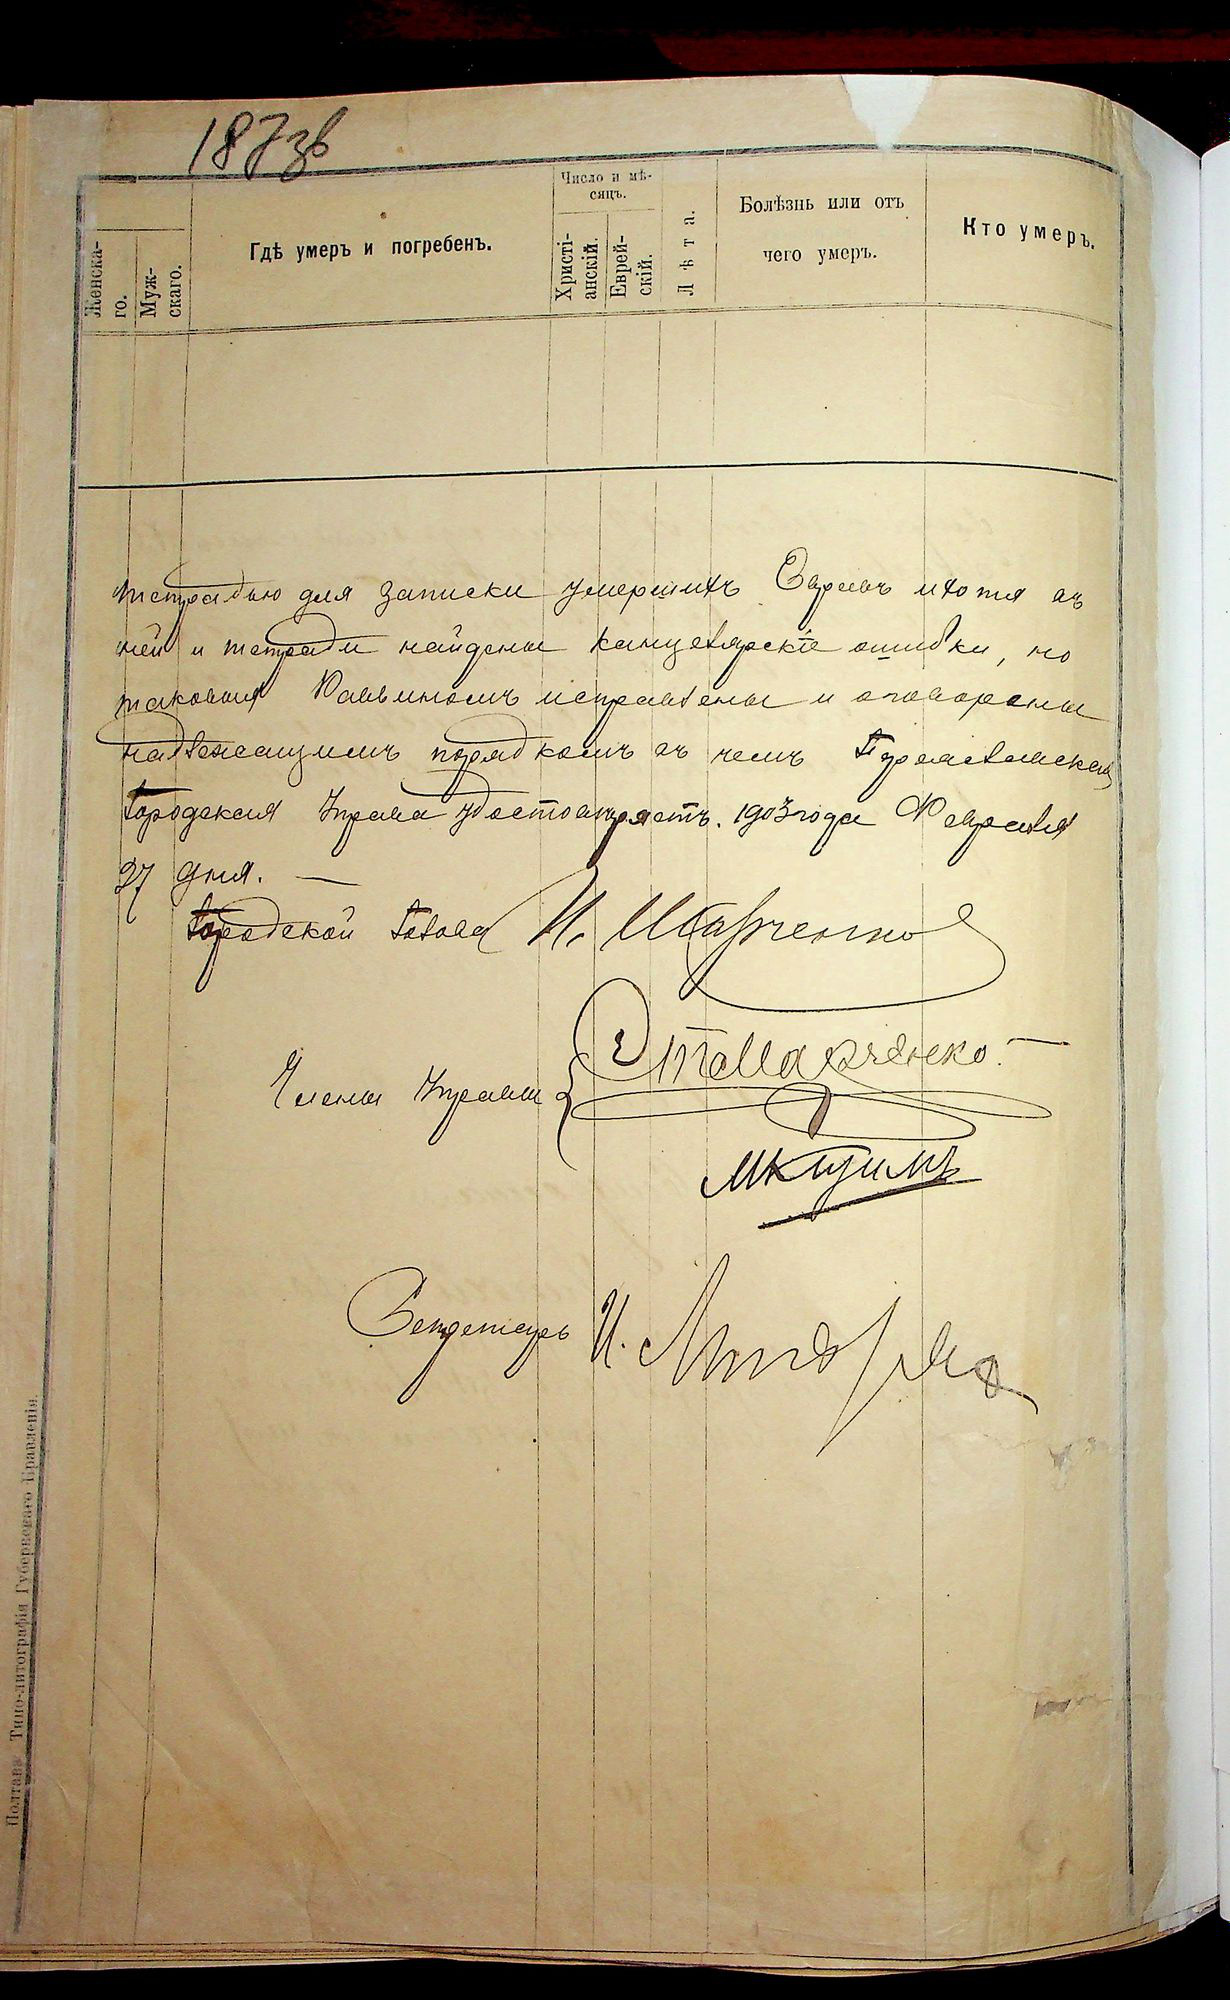 187зв
Женска-
го.
Муж-
скаго.
Гдѣ умеръ и погребенъ.
Число и мѣ-
сяцъ.
Христі-
анскій.
Еврей-
скій.
Лѣта.
Болѣзнь или отъ
чего умеръ.
Кто умеръ.
тетрадью для записки умершихъ Евреевъ и хотя въ
ней и тетради найдены канцелярскіе ошибки, но
таковыя Раввиномъ исправлены и оговорены
надлежащимъ порядкомъ въ чемъ
Городская Управа удостовѣряетъ. 1903 года Февраля
27 дня. —
Городской Голова И.
Члены Управы
Секретарь И.
Полтава Типо-литографія Губернскаго Правленія.